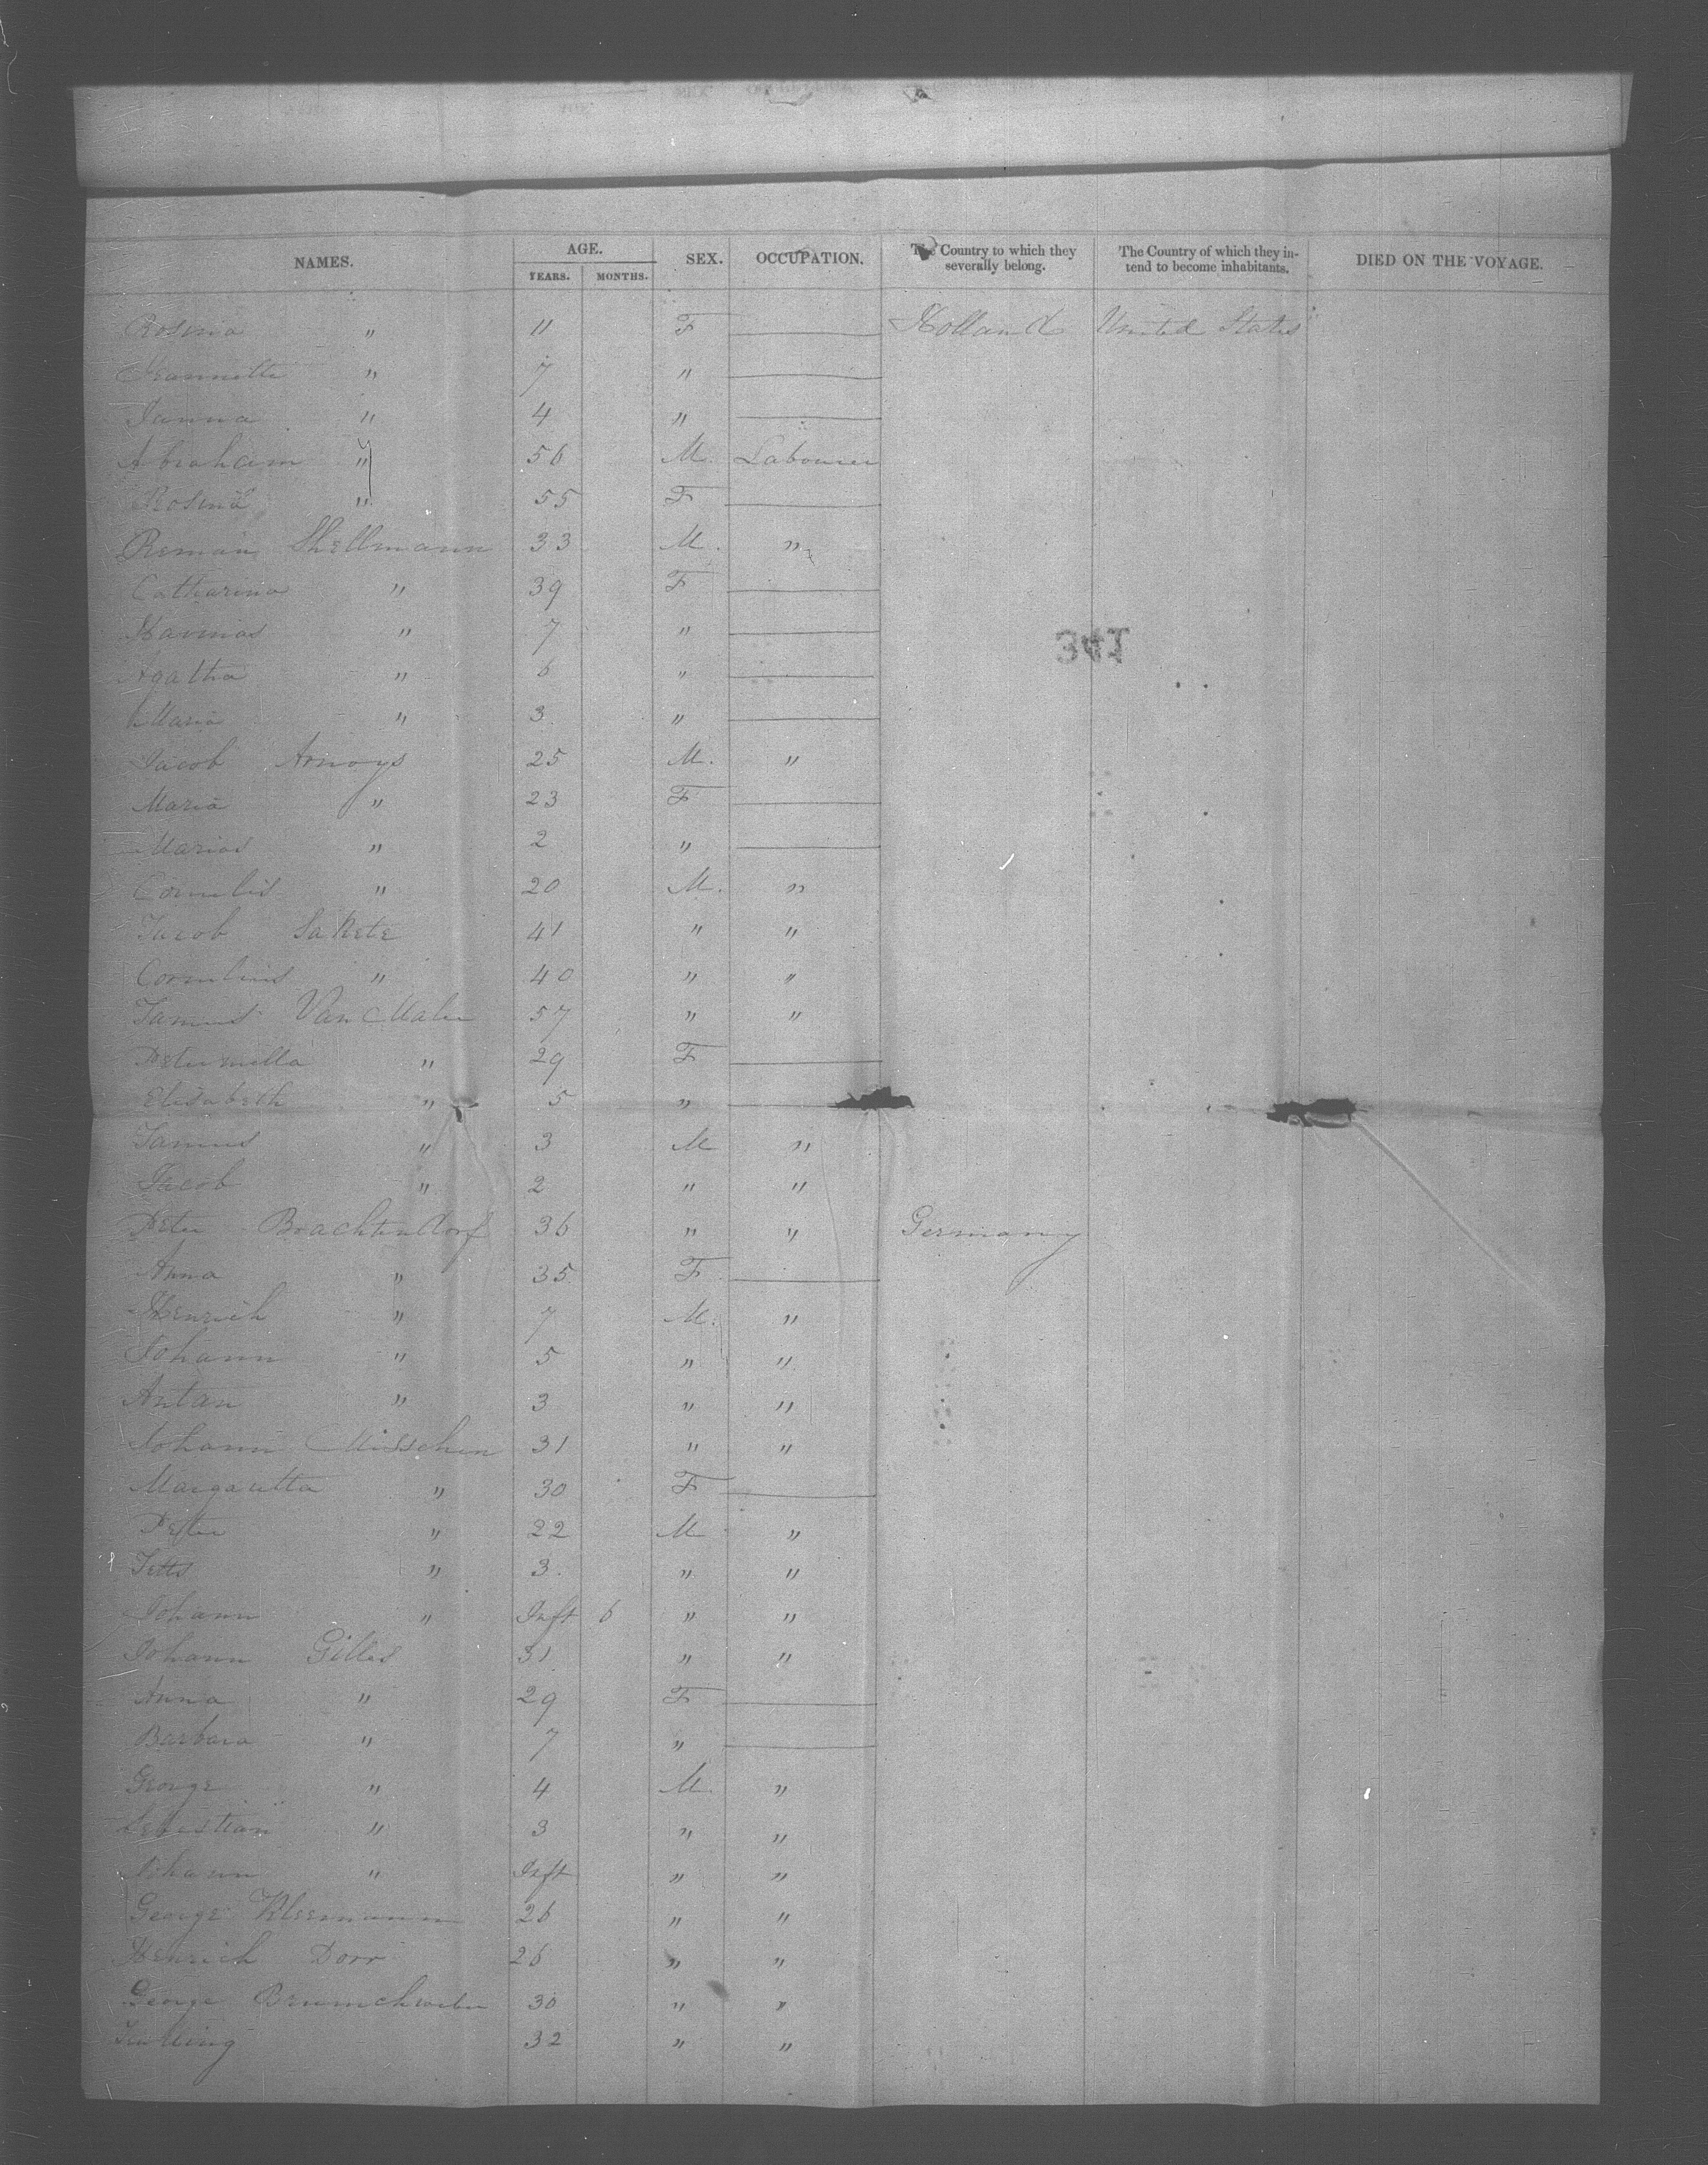 NAMES. AGE. SEX. OCCUPATION. The Country to which they severally belong. The Country of which they intend to become inhabitants. DIED ON THE VOYAGE.
YEARS. MONTHS.
Rosina " 11 F Holland United States
Jeannette " 7 "
Janna " 4 "
Abraham " 56 M. Labourer
Rosina " 55 F
Reman Shellmann 33 M. "
Catharina " 39 F
Hannas " 7 "
Agatha " 6 "
Maria " 3 "
Jacob Arnoys 25 M. "
Maria " 23 F
Marias " 2 "
Cornelis " 20 M. "
Jacob SaKete 41 " "
Cornelius " 40 " "
Jannus Van Malee 57 " "
Peternella " 29 F
Elisabeth " 5 "
Jannus " 3 M "
Jacob " 2 " "
Peter Brachtendorf 36 " " Germany
Anna " 35 F
Henrich " 7 M. "
Johann " 5 " "
Antan " 3 " "
Johann Misschen 31 " "
Margaretta " 30 F
Peter " 22 M "
" 3 " "
Johann " Inft 6 " "
Johann Gilles 31 " "
Anna " 29 F
Barbara " 7 "
George " 4 M. "
Sebastian " 3 " "
Johann " Inft " "
George Kleemann 26 " "
Henrich Dorr 26 " "
George 30 " "
32 " "
341